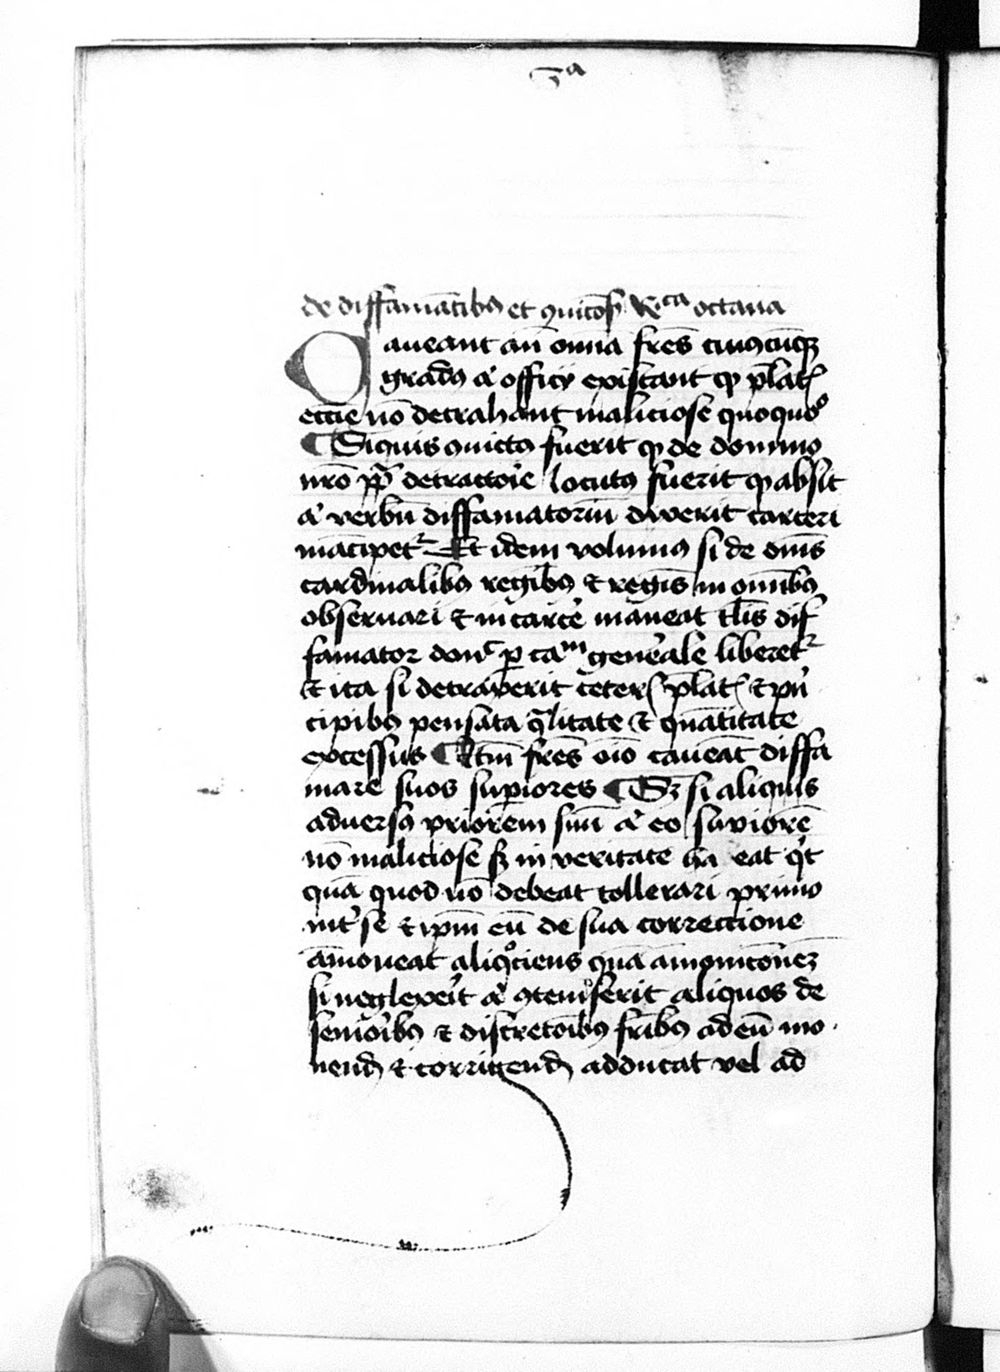 de diffamātibꝫ et ꝯuictꝭ Rᶜᵃ octaua
Caueant aūt omīa frēs cuiuscūqꝫ
gradꝰ aͧ officij existant qͥ p̄latꝭ
eccīe nō detrahant maliciose quoquoͦ
¶ Siquis ꝯuictꝰ fuerit qͥ de domino
nrō pp̄ detractoīe locutꝰ fuerit qͥ absit
aͧ verbū diffamatoriū dixerit carceri
mācipetͬ Et idem volumꝰ si de dnīs
cardinalibꝫ regibꝫ ⁊ regīs in omībꝫ
obseruari ⁊ in carcē maneat tl̄is dif
famator donͨ p caᵐ gene̾ale liberetͬ
⁊ ita si detraxerit ceterꝭ p̄latꝭ ⁊ pͥn
cipibꝫ pensata qͣlitate ⁊ quātitate
excessus ¶ Itm̄ frēs oīo caueāt diffa
mare suos supiores ¶ Sꝫ si aliquis
aduersꝰ priorem suū aͧ eo supiorē
nō maliciose sꝫ in veritate ha eat qͥt
quā quod nō debeat tollerari primo
int̾ se ⁊ ipm̄ eū de sua correctione
āmoueat aliqͦciens quā amonicōnez
si neglexe̾it aͧ ꝯtempserit aliquos de
senioribꝫ ⁊ discretoibꝫ fribꝫ ad eū mo
nend ⁊ corrigend adducat vel ad